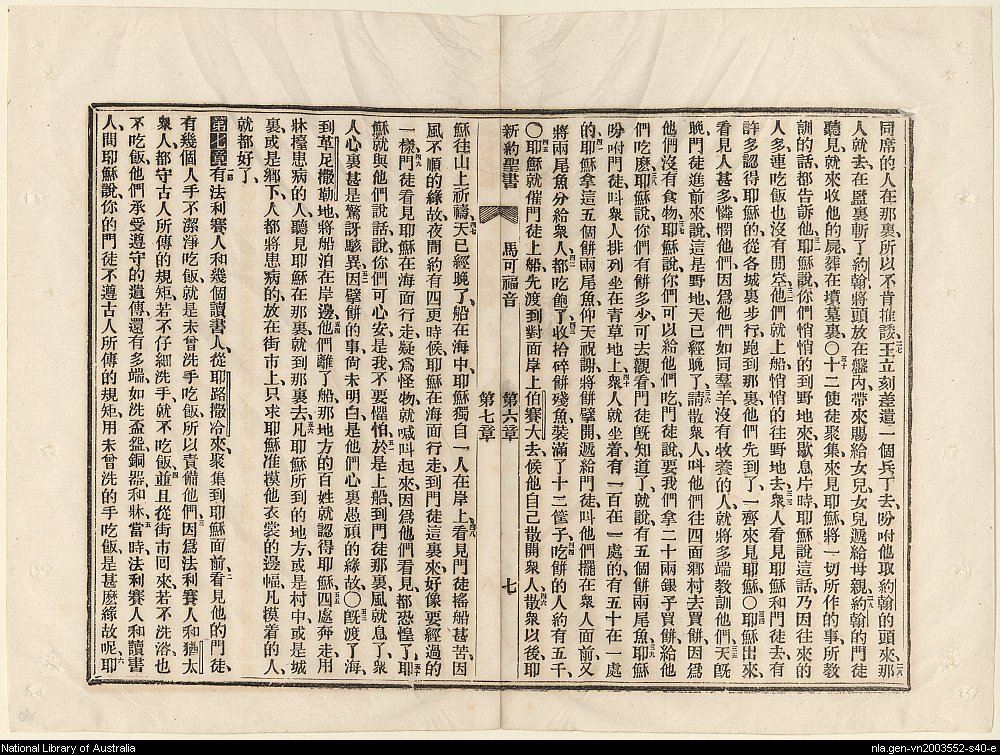 同席的人在那裏所以不肯推諉、王立刻差遣一個兵丁去吩咐他取約翰的頭來、那
人就去在監裏斬了約翰、將頭放在盤內帶來賜給女兒、女兒遞給母親、約翰的門徒
聽見就來收他的屍葬在墳墓裏○十二使徒聚集來見耶穌將一切所作的事、所教
訓的話、都告訴他、耶穌說、你們悄悄的到野地來歇息片時、耶穌說這話、乃因往來的
人多、連吃飯也沒有閒空、他們就上船悄悄的往野地去、衆人看見耶穌和門徒去、有
許多認得耶穌的、從各城裏步行跑到那裏、他們先到了、一齊來見耶穌○耶穌出來、
看見人甚多、憐憫他們、因爲他們如同羣羊沒有牧養的人、就將多端教訓他們、天旣
晚、門徒進前來說、這是野地、天已經晚了、請散衆人、叫他們往四面鄉村去買餅、因爲
他們沒有食物、耶穌說、你們可以給他們吃、門徒說、要我們拿二十兩銀子買餅給他
們吃麽、耶穌說、你們有餅多少、可去觀看、門徒旣知道了、就說、有五個餅兩尾魚、耶穌
吩咐門徒、叫衆人排列坐在青草地上、衆人就坐着、有一百在一處的、有五十在一處
的、耶穌拿這五個餅兩尾魚、仰天祝謝、將餅擘開、遞給門徒、叫他們擺在衆人面前、又
將兩尾魚分給衆人、都吃飽了、收拾碎餅殘魚裝滿了十二筐子、吃餅的人約有五千、
○耶穌就催門徒上船、先渡到對面岸上伯賽大去、候他自己散開衆人、散衆以後、耶
新約聖書 馬可福音 第六章 第七章 七
穌往山上祈禱、天已經晚了、船在海中、耶穌獨自一人在岸上、看見門徒搖船甚苦、因
風不順的緣故、夜間約有四更時候、耶穌在海面行走、到門徒這裏來、好像要經過的
一樣、門徒看見耶穌在海面行走、疑爲怪物、就喊叫起來、因爲他們看見、都恐惶了、耶
穌就與他們說話、說、你們可心安、是我、不要懼怕、於是上船到門徒那裏、風就息了、衆
人心裏甚是驚訝駭異、因擘餅的事尙未明白、是他們心裏愚頑的緣故○旣渡了海
到革尼撒勒地、將船泊在岸邊、他們離了船、那地方的百姓就認得耶穌、四處奔走、用
牀擡患病的人、聽見耶穌在那裏、就到那裏去、凡耶穌所到的地方、或是村中、或是城
裏、或是鄉下、人都將患病的放在街市上、只求耶穌准摸他衣裳的邊幅、凡摸着的人、
就都好了、
第七章 有法利賽人和幾個讀書人、從耶路撒冷來聚集到耶穌面前、看見他的門徒、
有幾個人手不潔淨吃飯、就是未曾洗手吃飯、所以責備他們、因爲法利賽人和猶太
衆人都守古人所傳的規矩、若不仔細洗手、就不吃飯、並且從街市囘來、若不洗浴、也
不吃飯、他們承受遵守的遺傳、還有多端、如洗盃盌銅器和牀、當時法利賽人和讀書
人、問耶穌說、你的門徒不遵古人所傳的規矩、用未曾洗的手吃飯、是甚麽緣故呢、耶
National Library of Australia
nla.gen-vn2003552-s40-e